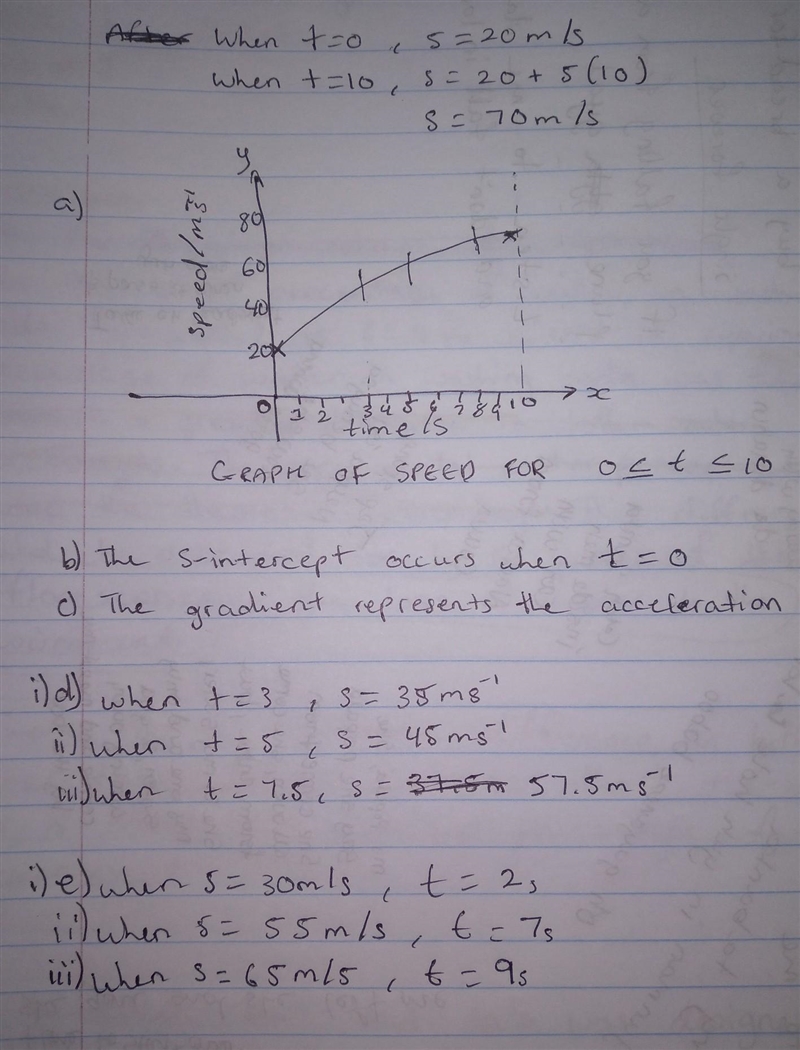 After When t=0 , s=20m/s
When t=10 , s= 20 + 5(10)
s = 70m/s
a)
y
Speed/ms⁻¹
80
60
40
20
0 1 2 3 4 5 6 7 8 9 10 x
time/s
GRAPH OF SPEED FOR 0 ≤ t ≤ 10
b) The S-intercept occurs when t = 0
c) The gradient represents the acceleration
i)d) when t=3 , s= 35ms⁻¹
ii) when t=5 , s= 45ms⁻¹
iii) when t=7.5, s= 37.5m 57.5ms⁻¹
i)e) when s= 30m/s , t= 2s
ii) when s= 55m/s , t= 7s
iii) when s=65m/s , t= 9s